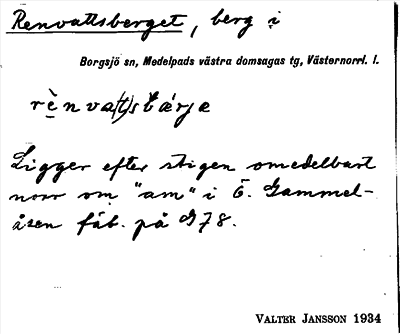 Renvattsberget, berg i
Borgsjö sn, Medelpads västra domsagas tg, Västernorrl. l.
rènva(t)sbárje
Ligger efter stigen omedelbart
norr om "am" i Ö. Gammel-
åsen fäb. på G78.
VALTER JANSSON 1934